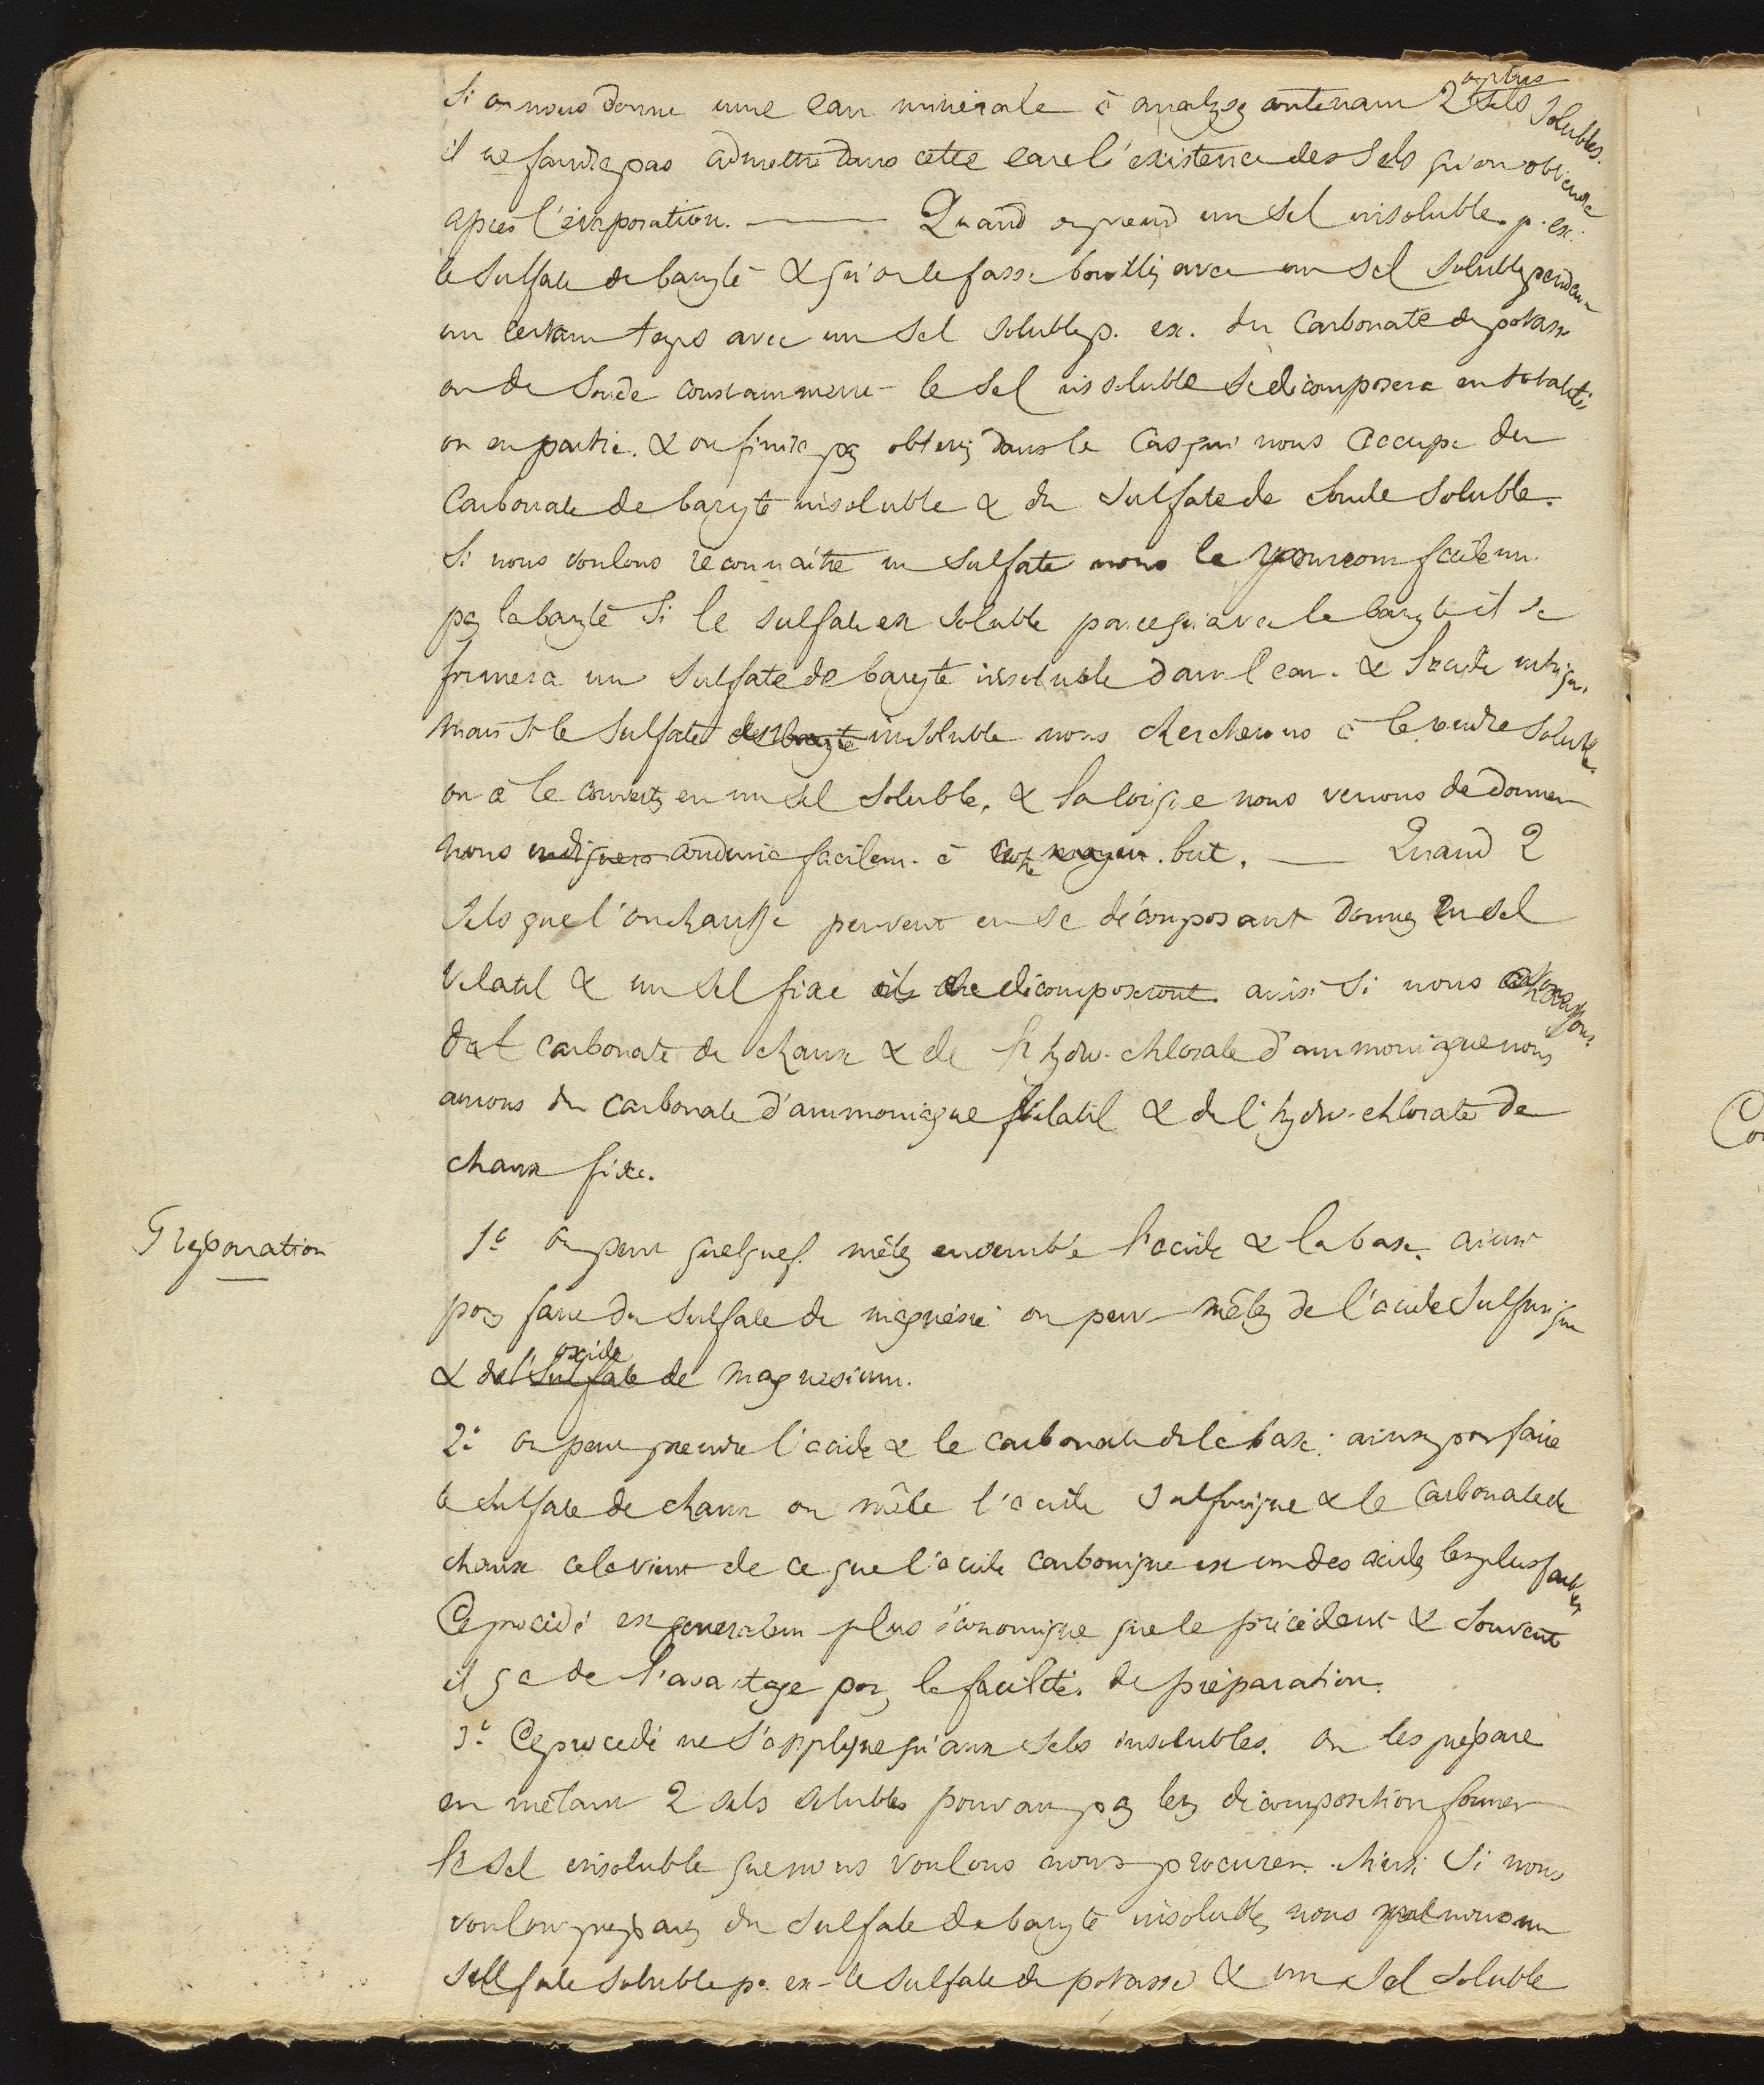 Si on nous donne une eau minérale à analyser contenant 2 ou plus sels solubles.
il ne faudra pas admettre dans cette eau l'existence des sels qu'on obtiendra
après l'évaporation. —— Quand on prend un sel insoluble. p. ex:
le sulfate de baryte & qu'on le fasse bouillir avec un sel soluble pendant
un certain temps avec un sel soluble p. ex. du Carbonate de potasse
ou de soude constamment le sel insoluble se décomposera en totalité
ou en partie. & on finira par obtenir dans le cas qui nous occupe du
Carbonate de baryte insoluble & du sulfate de soude soluble.
Si nous voulons reconnaître un sulfate nous le pourrons facilem.
par la baryte si le sulfate est soluble parcequ'avec la baryte il se
formera un sulfate de baryte insoluble dans l'eau. & l'acide nitrique.
mais si le sulfate est insoluble nous chercherons à le rendre soluble.
ou à le convertir en un sel soluble. & la loi que nous venons de donner
nous conduira facilem. à notre but. — Quand 2
sels que l'on chauffe peuvent en se décomposant donner un sel
volatil & un sel fixe ils se décomposeront. ainsi si nous chauffons
du carbonate de chaux & de l'hydro-chlorate d'ammoniaque nous
aurons du carbonate d'ammoniaque volatil & de l'hydro-chlorate de
chaux fixe.
Préparation
1º On peut quelquef. mêler ensemble l'acide & la base. ainsi
pour faire du sulfate de magnésie on peut mêler de l'acide sulfurique
& de l'sulfate oxide de magnesium.
2º on peut prendre l'acide & le carbonate de la base. ainsi pour faire
le sulfate de chaux on mêle l'acide sulfurique & le Carbonate de
chaux cela vient de ce que l'acide carbonique est un des acides les plus faibles
Ce procédé est generalem plus économique que le précédent & souvent
il y a de l'avantage pour la facilité de préparation.
3º Ce procédé ne s'applique qu'aux sels insolubles. on les prépare
en mêlant 2 sels solubles pouvant par leur décomposition former
le sel insoluble que nous voulons nous procurer. Ainsi si nous
voulons préparer du sulfate de baryte insoluble, nous prenons un
sulfate soluble p. ex. le sulfate de potasse & un sel soluble